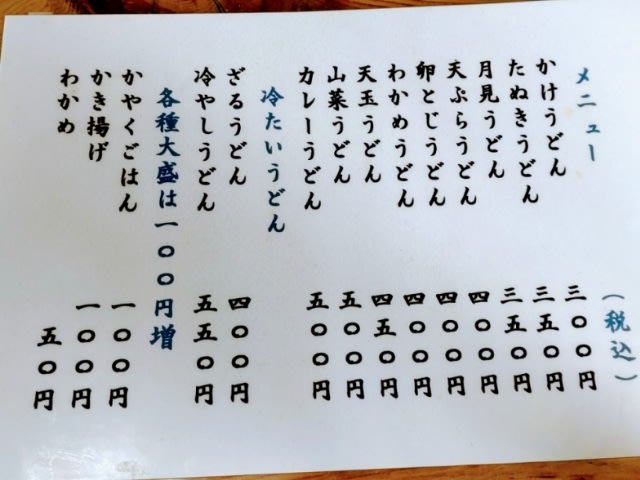 メニュー (税込)
かけうどん 三〇〇円
たぬきうどん 三五〇円
月見うどん 三五〇円
天ぷらうどん 四〇〇円
卵とじうどん 四〇〇円
わかめうどん 四〇〇円
天玉うどん 四五〇円
山菜うどん 五〇〇円
カレーうどん 五〇〇円
冷たいうどん
ざるうどん 四〇〇円
冷やしうどん 五五〇円
各種大盛は一〇〇円増
かやくごはん 一〇〇円
かき揚げ 一〇〇円
わかめ 五〇円